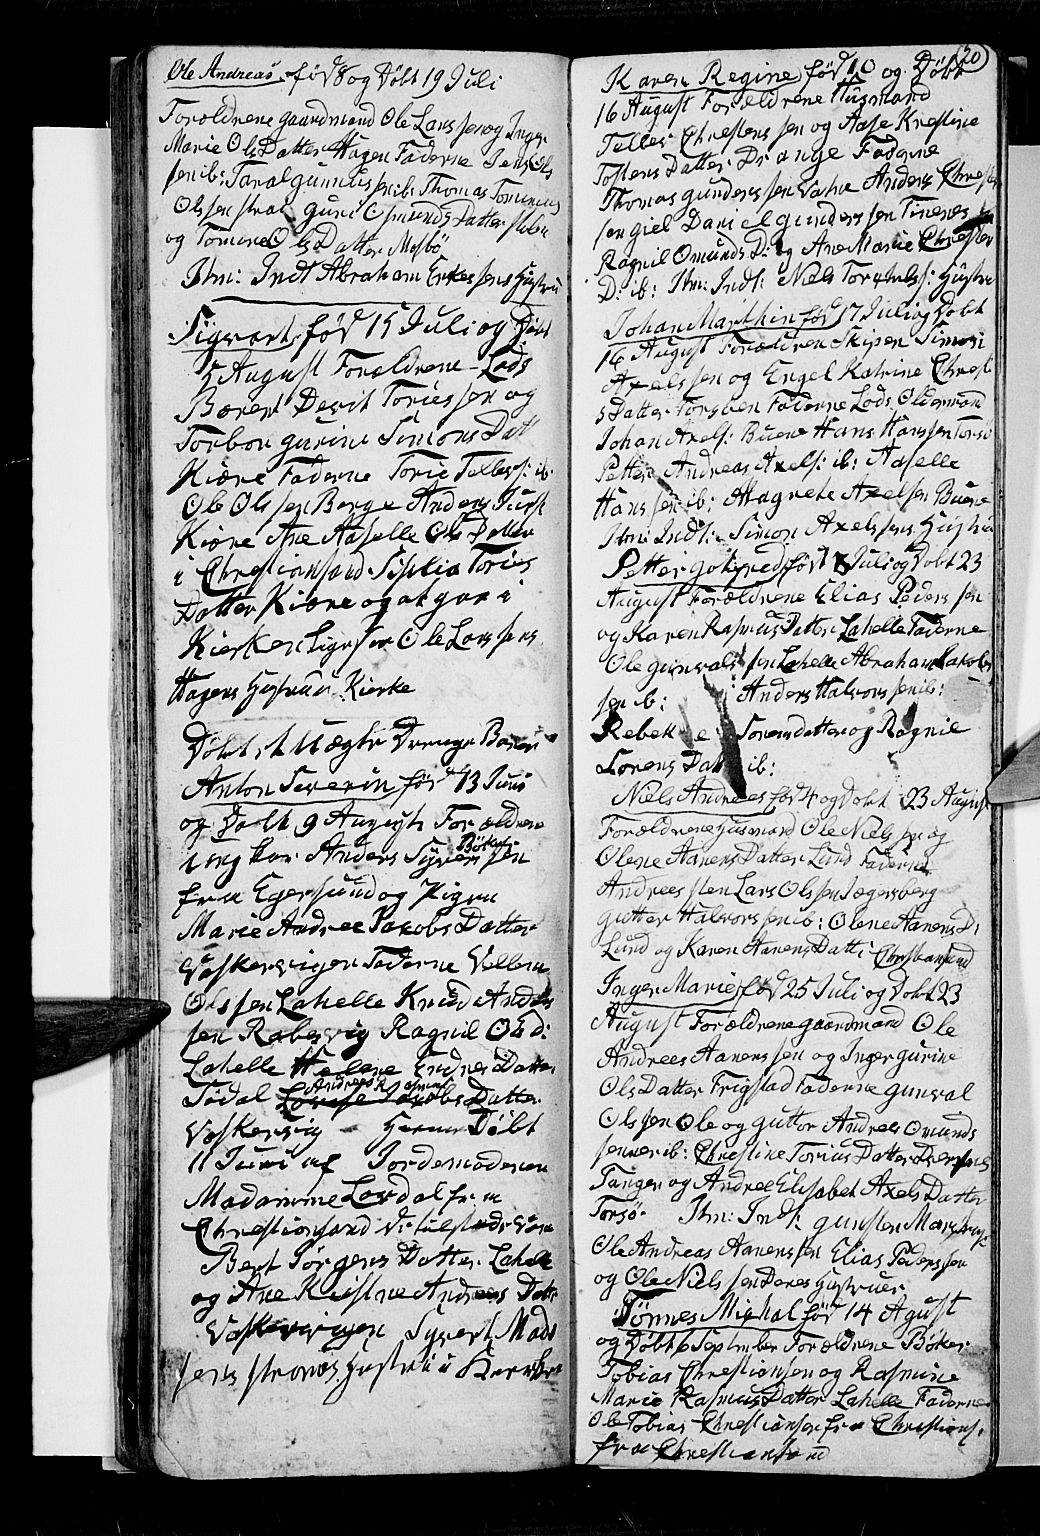 Ole Andreas født 8 og Døbt 19 Juli
Forældrene gaardmand Ole Larssen og Inger
Marie OlsDatter Hagen Faderne Jens Ols
sen ib: Taral gunnlissen ib: Thomas Tominius
Olssen strai guri OsmundsDatter
og Tomine OlsDatter Mesbø
Itm: Indt Abraham Erkessens Hustru
Sigvart født 15 Juli og Døbt
5 August Forældrene Lods
Berent Toriessen og
Torbor gurine SimonsDatt
Kiære Faderne Torie Telless: ib:
Ole Olssen Berge Anders
Kiære Ane Aaselle Ols Datter
i Christiansand Siplia Tories
Datter Kiære og at gaa i
Kierken Ole Larssens
Hagens Hustru Kierke
Døbt et Uægte Drenge Baren
Anton Severin fød 13 Juni
og Døbt 9 August Forældrene
ungkar Anders Syversen Bøker
fra Egersund og Pigen
Marie Andree Jakobs Datter
Vaskervigen Faderne Vellem
Olssen Lahelle Knud Anders
sen Rabersvig Ragnil Ols D:
Lahelle Helene Endres Datter
Andreas Rasmus
Tødal Lovise Jacobs Datter
Vaskervig Hiemme Døbt
11 Juni af Jordemoderen
Madamme Lordal fra
Christiansand V: tilstede Vare
Bert Jørgens Datter Lahelle
og Ane Kirstine Andreas Datt
Vaskervigen Syvert Mads
sens Hustru i Kierken
20
Karen Regine fød 10 og Døbt
16 August Forældrene Husmand
Tellef Chrestenssen og Aase Krestine
Tostens Datter Drange Faderne
Thomas gunderssen Vatne Anders Chresten
sen giel Daniel gunderssen Tinenes
Ragnil Omunds D: og Ane Marie Chresten
D: ib: Itm: Indt: Niels Hustru
Johan Marthin fød 17 Juli og Døbt
16 August Forældren Skipen Simon
Axelssen og Engel Katrine Chrest
s Datter Torsøen Faderne Lods Oldermand
Johan Axels: Buene Hans Hanssen Torsø
Petter Andreas Axels: ib: Aaselle
Hanssen ib: Magrete Axelsen Buene
Itm: Indt: Simon Axelssens Hustru
Petter gotfred født Juli og Døbt 23
August Forældrene Elias Pederssen
og Karen RasmusDatter Lahelle Faderne
Ole gunvalssen Lahelle Abraham Jakobs
sen ib: Anders Halvorssen ib:
Rebekke Sorensdatter og Ragnie
Sorens Datt ib:
Niels Andrees fød 4 og Døbt 23 August
Forældrene Husmand Ole Nielssen og
Olene AanensDatter Lund Faderne
Andreas sten Lars Olssen Jægersberg
gutter Halvorssen ib: Olene Aanens D:
Lund og Karen Aanens Datt: Christiansand
Inger Marie fød 25 Juli og Døbt 23
August Forældrene gaardmand Ole
Andrees Aanenssen og Inger gurine
OlsDatter Frigstad Faderne gunval
Olssen Ole og guttor Andrees Omunds
senner ib: Christine Torius Datter
Tangen og Andree Elisabet Axels Datter
Torsø. Itm: Indt:
Ole Andreas Aanenssen Elias Pederssen
og Ole Nielssen Deres Hustruer
Tønnes Michal fød 14 Agust
og Døbt 6 September Forældrene Bøker
Tobias Christianssen og Rasmine
Marie Rasmus Datter Lahelle Faderne
Ole Tobias Christianssen fra Christians:
fra Christiansand